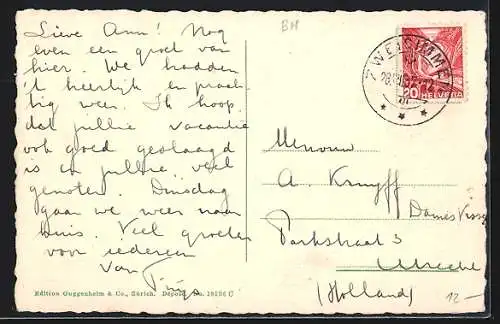 Lieve Ann! Nog
even een groet van
hier. We hadden
't heerlijk en prach-
tig weer. Ik hoop
dat jullie vacantie
ook goed geslaagd
is en jullie veel
genoten. Dinsdag
gaan we weer naar
huis. Veel groeten
voor iedereen
van
BM
ZWEISIMMEN
20
HELVETIA
Mevrouw
A. Kruyff
Dames
Parkstraat 3
Utrecht
(Holland)
12-
Edition Guggenheim & Co., Zürich. Dépose No. 19196 C